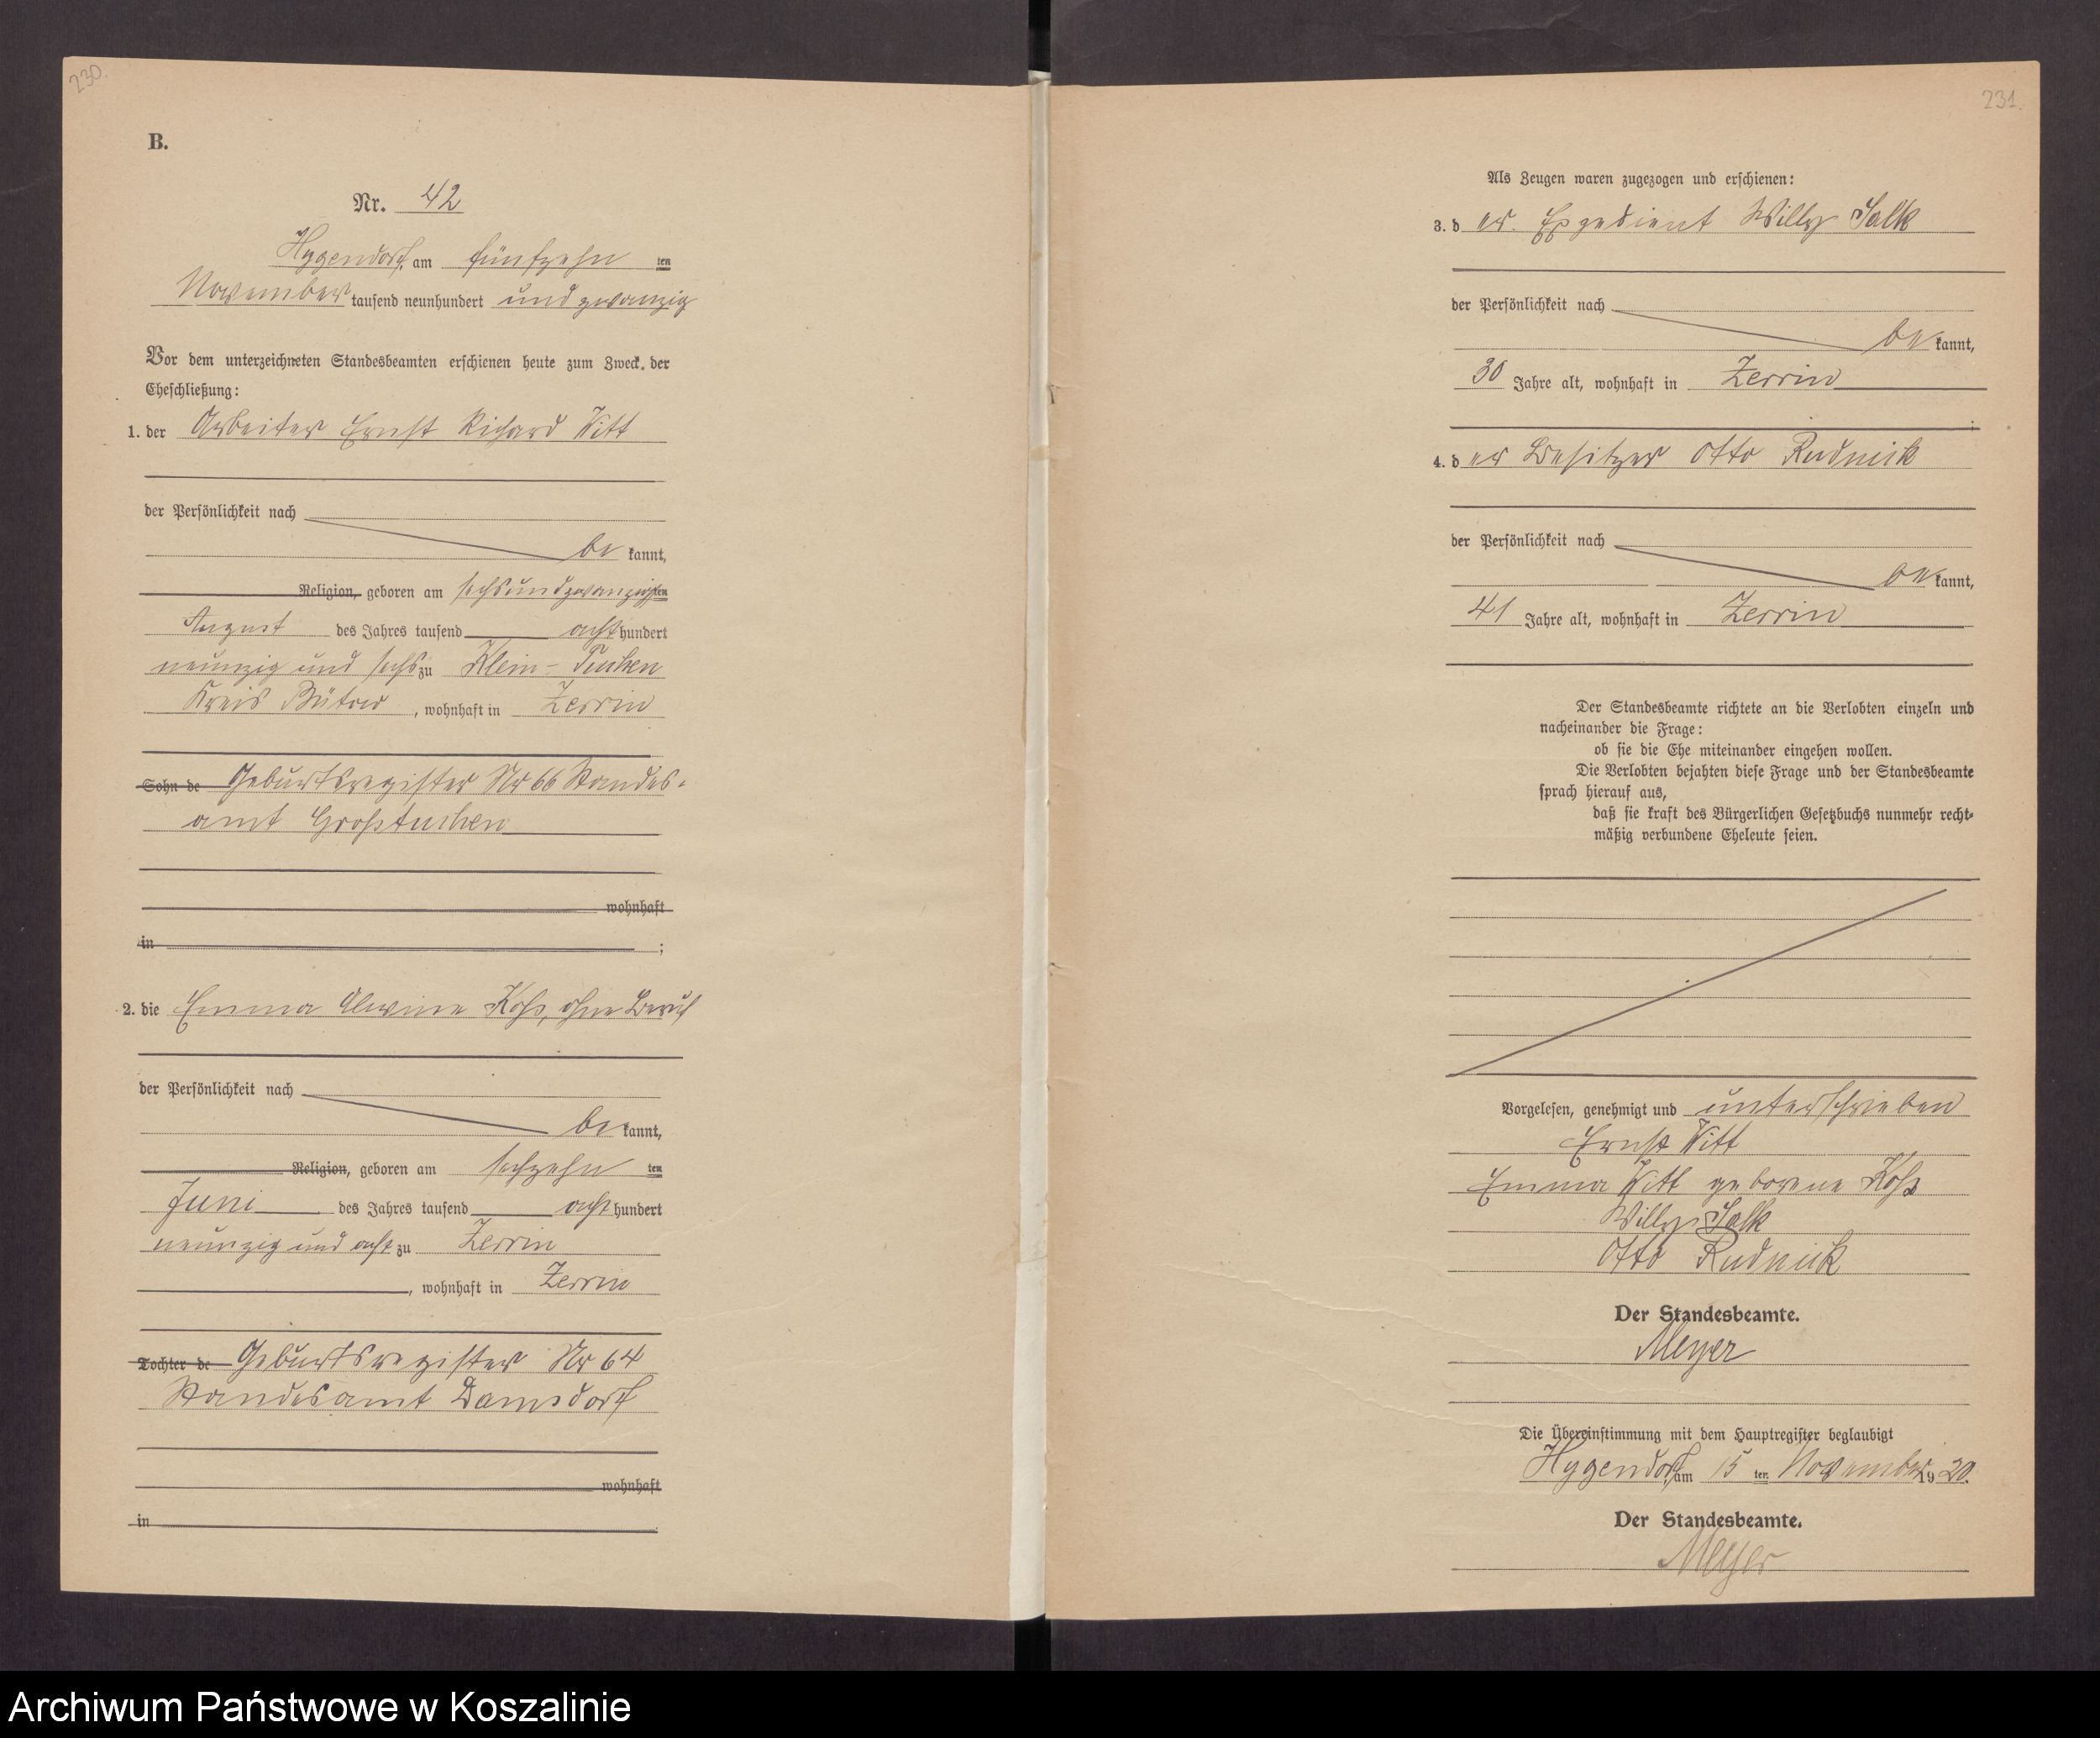 230.
B.
Nr. 42
Hygendorf, am fünfzehn ten
November tausend neunhundert und zwanzig
Vor dem unterzeichneten Standesbeamten erschienen heute zum Zweck der
Eheschließung:
1. der Arbeiter Ernst Richard Witt
der Persönlichkeit nach
be kannt,
Religion, geboren am sechsundzwanzigsten
August des Jahres tausend acht hundert
neunzig und sechs zu Klein-Tuchen
Kreis Bütow, wohnhaft in Zerrin
Sohn de Geburtsregister Nr 66 Standes-
amt Großtuchen
wohnhaft
in ;
2. die Emma Alwine Koß, ohne Beruf
der Persönlichkeit nach
be kannt,
Religion, geboren am sechzehn ten
Juni des Jahres tausend acht hundert
neunzig und acht zu Zerrin
, wohnhaft in Zerrin
Tochter de Geburtsregister Nr 64
Standesamt Damsdorf
wohnhaft
in
231.
Als Zeugen waren zugezogen und erschienen:
3. d er Expedient Willy Salk
der Persönlichkeit nach
be kannt,
30 Jahre alt, wohnhaft in Zerrin
;
4. d er Besitzer Otto Rudnick
der Persönlichkeit nach
be kannt,
41 Jahre alt, wohnhaft in Zerrin
Der Standesbeamte richtete an die Verlobten einzeln und
nacheinander die Frage:
ob sie die Ehe miteinander eingehen wollen.
Die Verlobten bejahten diese Frage und der Standesbeamte
sprach hierauf aus,
daß sie kraft des Bürgerlichen Gesetzbuchs nunmehr recht-
mäßig verbundene Eheleute seien.
Vorgelesen, genehmigt und unterschrieben
Ernst Witt
Emma Witt geborene Koß
Willy Salk
Otto Rudnick
Der Standesbeamte.
Meyer
Die Übereinstimmung mit dem Hauptregister beglaubigt
Hygendorf, am 15 ten November 19 20.
Der Standesbeamte.
Meyer
Archiwum Państwowe w Koszalinie